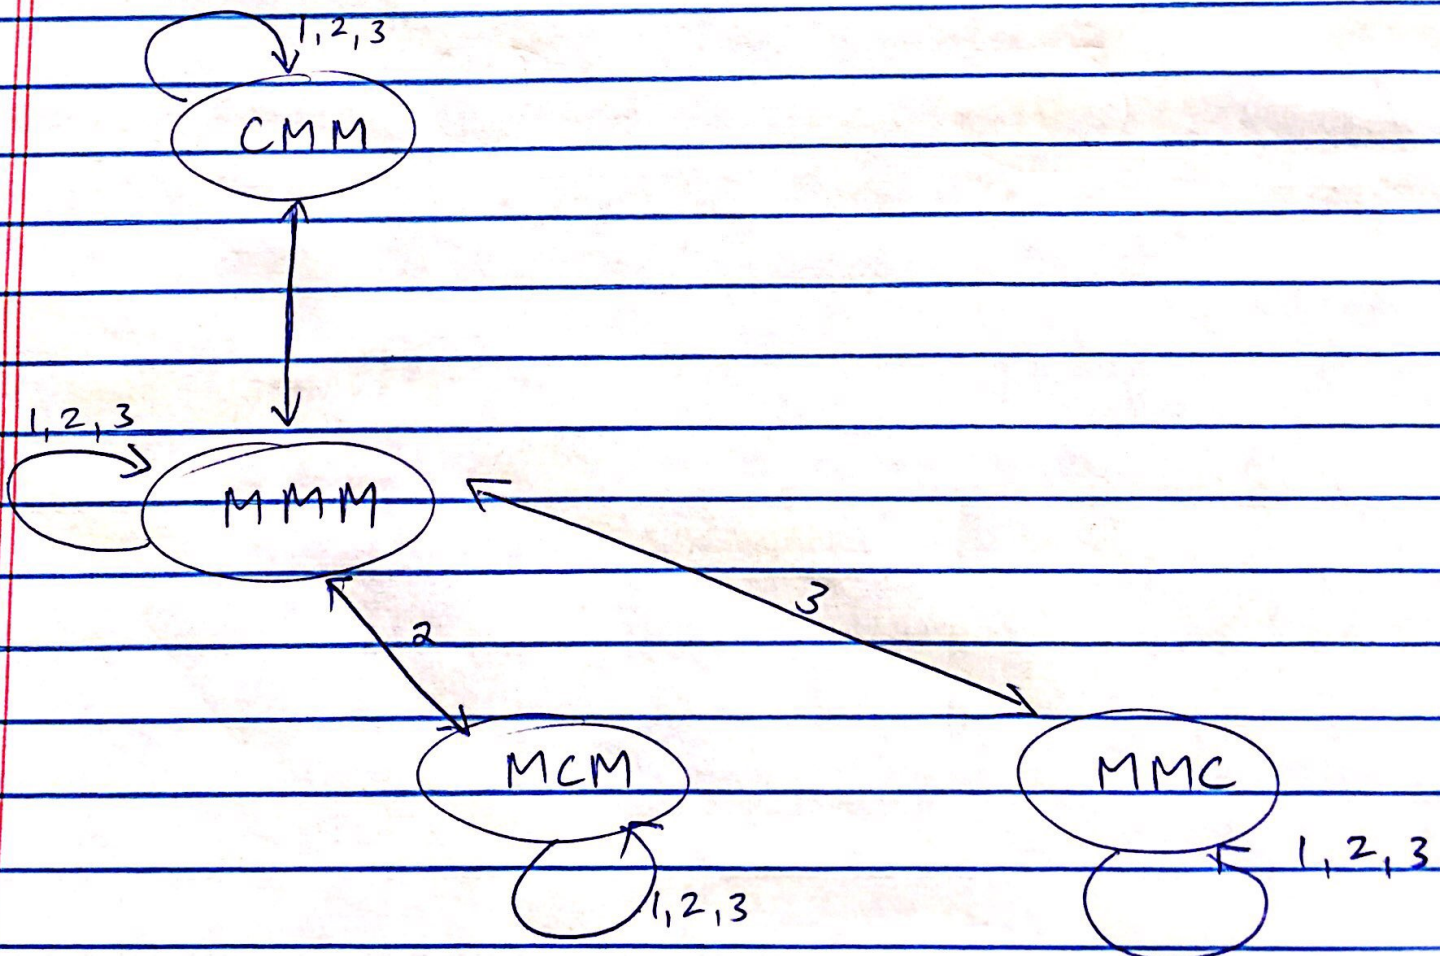 1,2,3
CMM
1,2,3
MMM
3
2
MCM
MMC
1,2,3
1,2,3